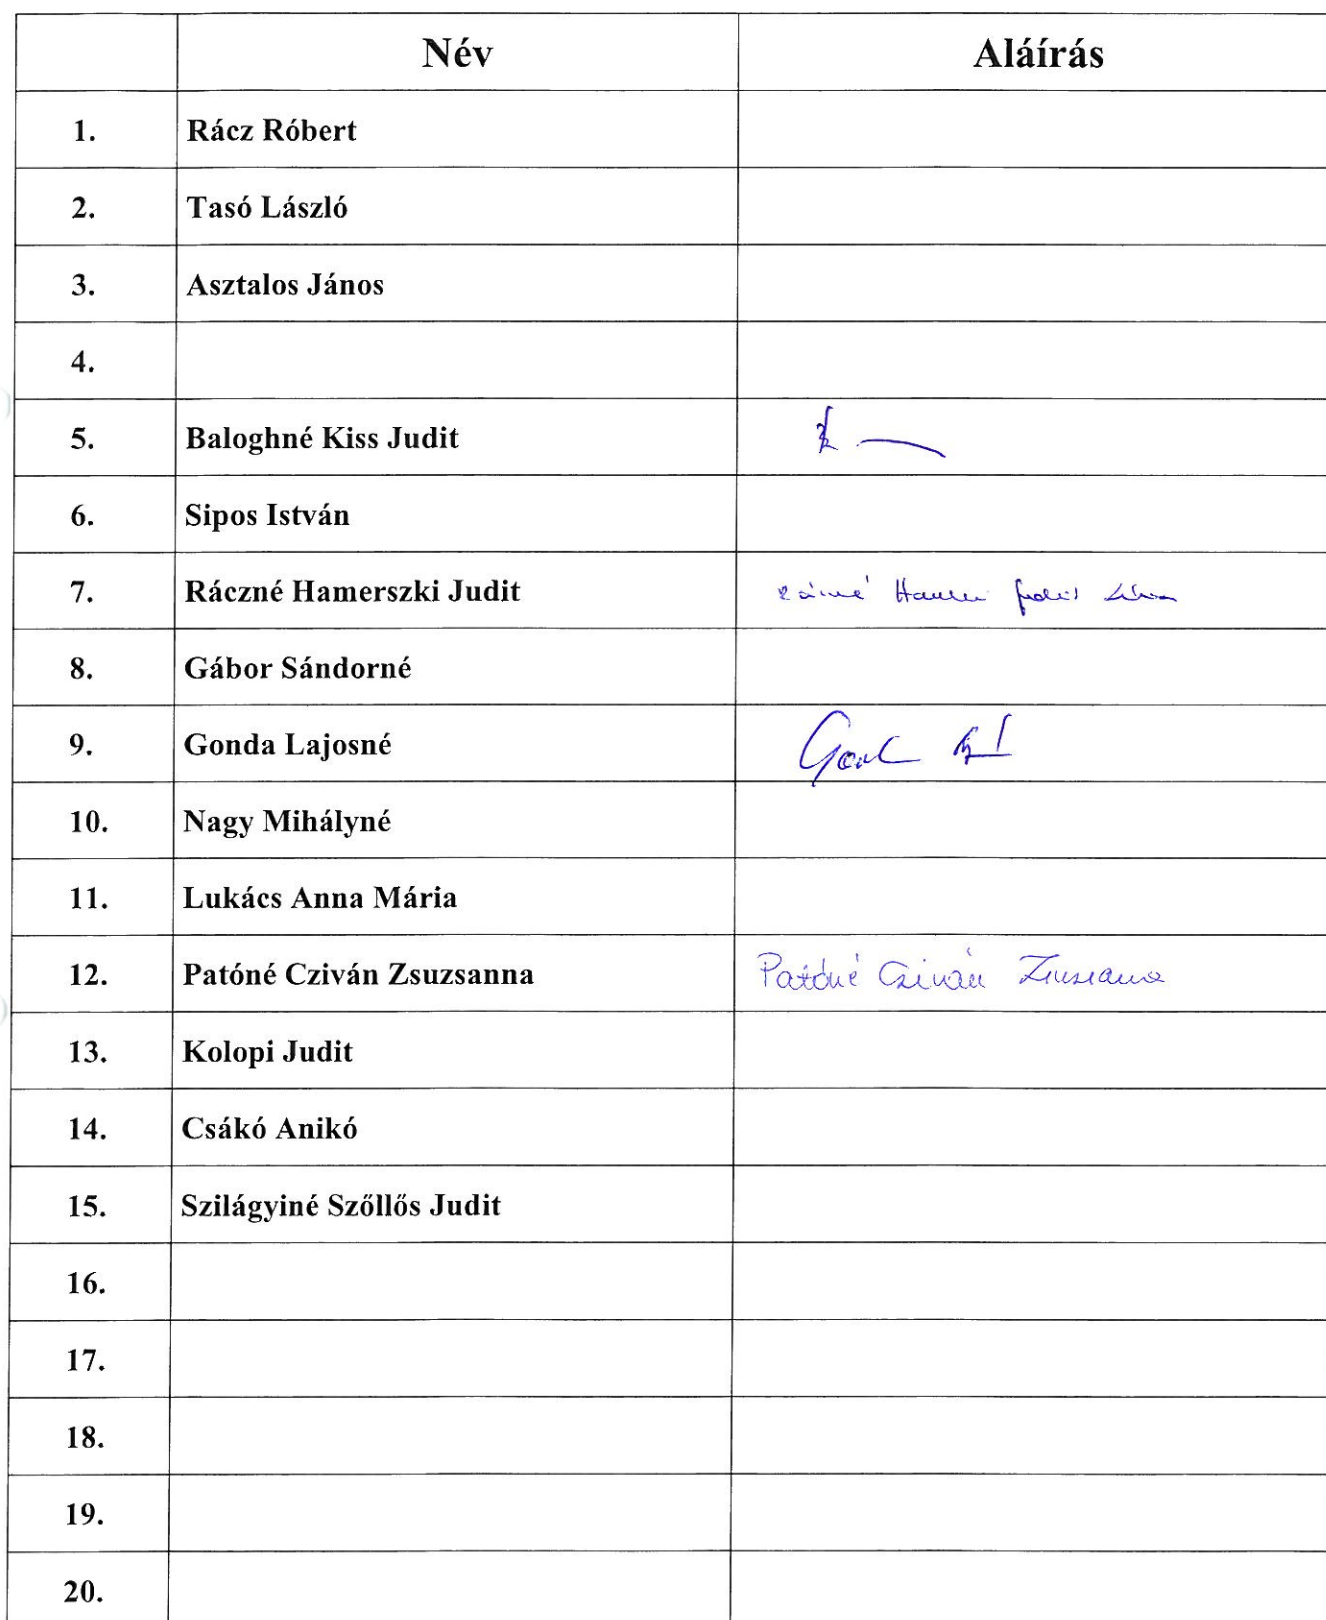 Név Aláírás
1. Rácz Róbert
2. Tasó László
3. Asztalos János
4.
5. Baloghné Kiss Judit
6. Sipos István
7. Ráczné Hamerszki Judit
8. Gábor Sándorné
9. Gonda Lajosné
10. Nagy Mihályné
11. Lukács Anna Mária
12. Patóné Cziván Zsuzsanna Patóné Cziván Zsuzsanna
13. Kolopi Judit
14. Csákó Anikó
15. Szilágyiné Szőllős Judit
16.
17.
18.
19.
20.